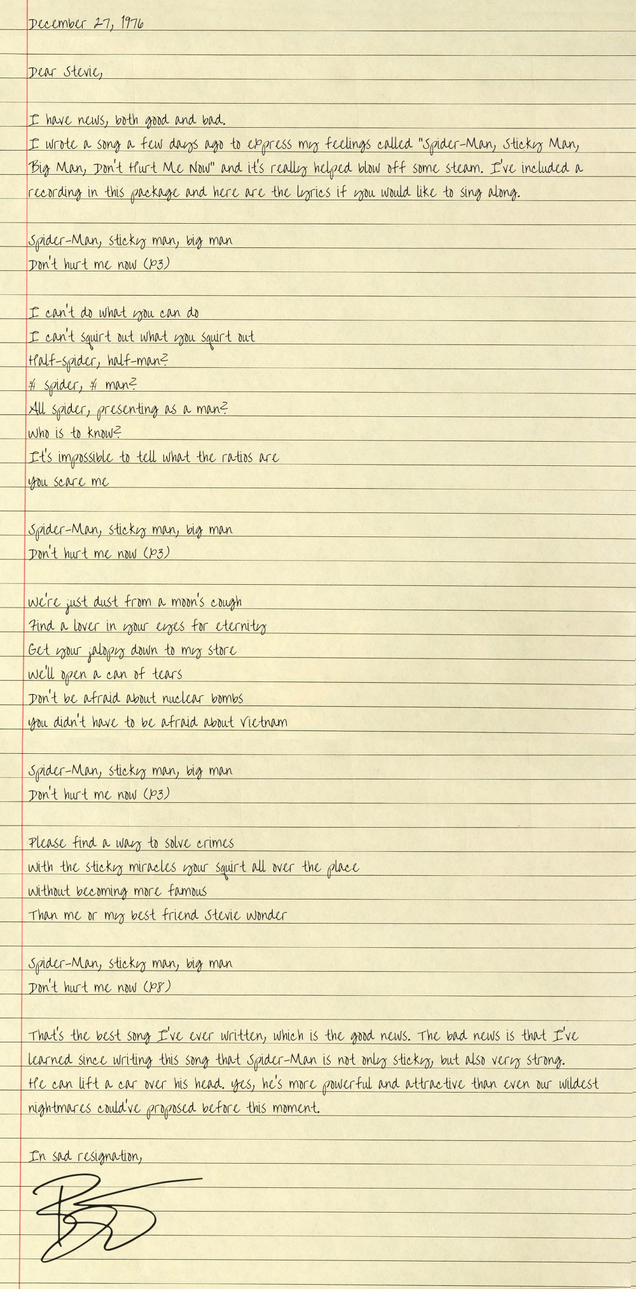 December 27, 1976
Dear Stevie,
I have news, both good and bad.
I wrote a song a few days ago to express my feelings called "Spider-Man, Sticky Man,
Big Man, Don't Hurt Me Now" and it's really helped blow off some steam. I've included a
recording in this package and here are the lyrics if you would like to sing along.
Spider-Man, sticky man, big man
Don't hurt me now (x3)
I can't do what you can do
I can't squirt out what you squirt out
Half-spider, half-man?
spider, man?
All spider, presenting as a man?
Who is to know?
It's impossible to tell what the ratios are
You scare me
Spider-Man, sticky man, big man
Don't hurt me now (x3)
We're just dust from a moon's cough
Find a lover in your eyes for eternity
Get your jalopy down to my store
We'll open a can of tears
Don't be afraid about nuclear bombs
You didn't have to be afraid about Vietnam
Spider-Man, sticky man, big man
Don't hurt me now (x3)
Please find a way to solve crimes
With the sticky miracles your squirt all over the place
Without becoming more famous
Than me or my best friend Stevie Wonder
Spider-Man, sticky man, big man
Don't hurt me now (x8)
That's the best song I've ever written, which is the good news. The bad news is that I've
learned since writing this song that Spider-Man is not only sticky, but also very strong.
He can lift a car over his head. Yes, he's more powerful and attractive than even our wildest
nightmares could've proposed before this moment.
In sad resignation,